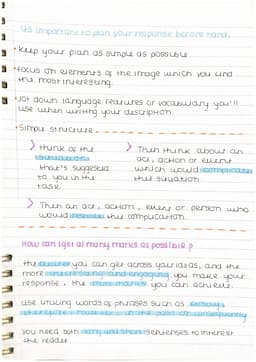 It's important to plan your response before hand.
• Keep your plan as simple as possible
• Focus on elements of the image which you find
the most interesting.
• Jot down language features or vocabulary you'll
use when writing your description
• Simple structure -
> Think of the
that's suggested
to you in the
task
> Then think about an
act, action or event
which would complicate
this situation
> Then an act, action, event or person who
would this complication.
How can I get as many marks as possible?
the you can get across your ideas, and the
more and engaging you make your
response, the more marks you can achieve.
use linking words or phrases such as
you need both long and short sentences to interest
the reader